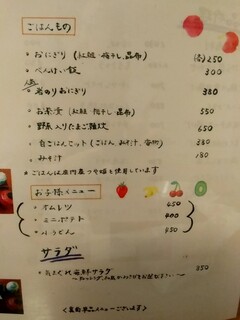 ごはんもの
・おにぎり (紅鮭 梅干し 昆布) (各)250
・べんけい飯 300
・岩のりおにぎり 380
・お茶漬 (紅鮭 梅干し 昆布) 550
・野菜入りたまご雑炊 650
・白ごはんセット (ごはん みそ汁 香物) 380
・みそ汁 180
※ごはんは庄内産つや姫を使用しています
お子様メニュー
・オムレツ 450
・ミニポテト 400
・うどん 450
サラダ
・気まぐれ海鮮サラダ 850